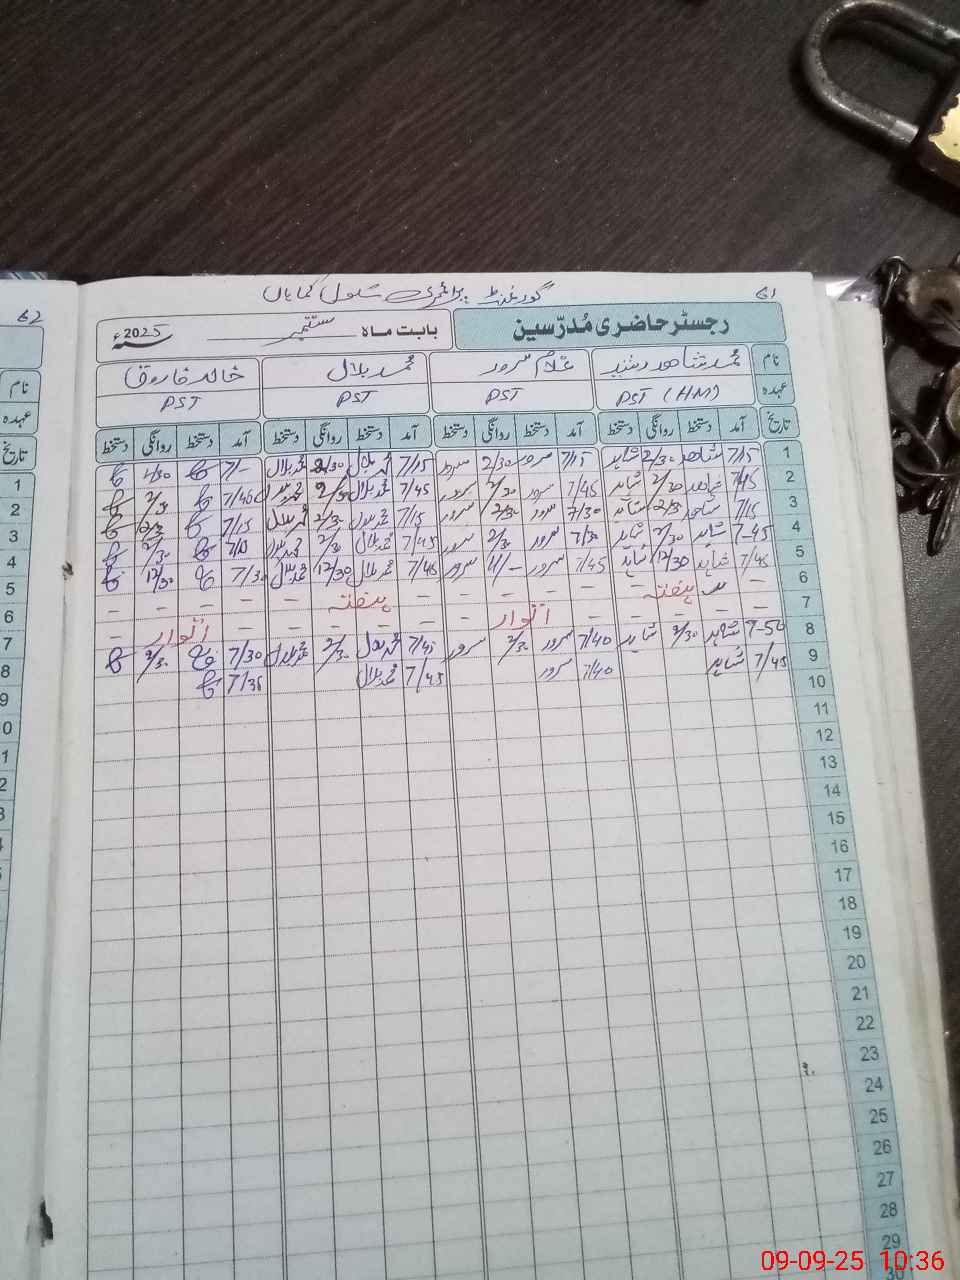 گورنمنٹ پرائمری سکول 61
62
رجسٹر حاضری مُدرّسین بابت ماہ ستمبر 2025ء
نام محمد شاھد رشید غلام سرور محمد بلال خالد فاروق
عہدہ PST (HM) PST PST PST
تاریخ آمد دستخط روانگی دستخط آمد دستخط روانگی دستخط آمد دستخط روانگی دستخط آمد دستخط روانگی دستخط
1 7/15 شاھد 2/30 شاہد 7/15 سرور 2/30 سرور 7/15 محمد بلال 2/30 محمد بلال 7/-
2 7/45 شاھد 2/30 شاہد 7/45 سرور 2/30 سرور 7/45 محمد بلال 2/30 محمد بلال 7/40 2/30
3 7/15 شاھد 2/30 شاہد 7/30 سرور 2/30 سرور 7/15 محمد بلال 2/30 محمد بلال 7/15 2/30
4 7-45 شاہد 2/30 شاہد 7/30 سرور 2/30 سرور 7/45 محمد بلال 2/30 محمد بلال 2/30
5 7/45 شاہد 12/30 شاہد 7/45 سرور 11/- سرور 7/45 محمد بلال 12/30 محمد بلال 7/30 12/30
6 - - ہفتہ - - - - - ہفتہ - - - - -
7 - - - - - - اتوار - - - - - - اتوار - -
8 7-50 شاہد 2/30 شاہد 7/40 سرور 2/30 سرور 7/45 محمد بلال 2/30 محمد بلال 7/30 2/30
9 7/45 شاہد 7/40 سرور 7/45 محمد بلال 7/35
10
11
12
13
14
15
16
17
18
19
20
21
22
23
24
25
26
27
28
29
30
نام
عہدہ
تاریخ
1
2
3
4
5
6
7
8
9
09-09-25 10:36